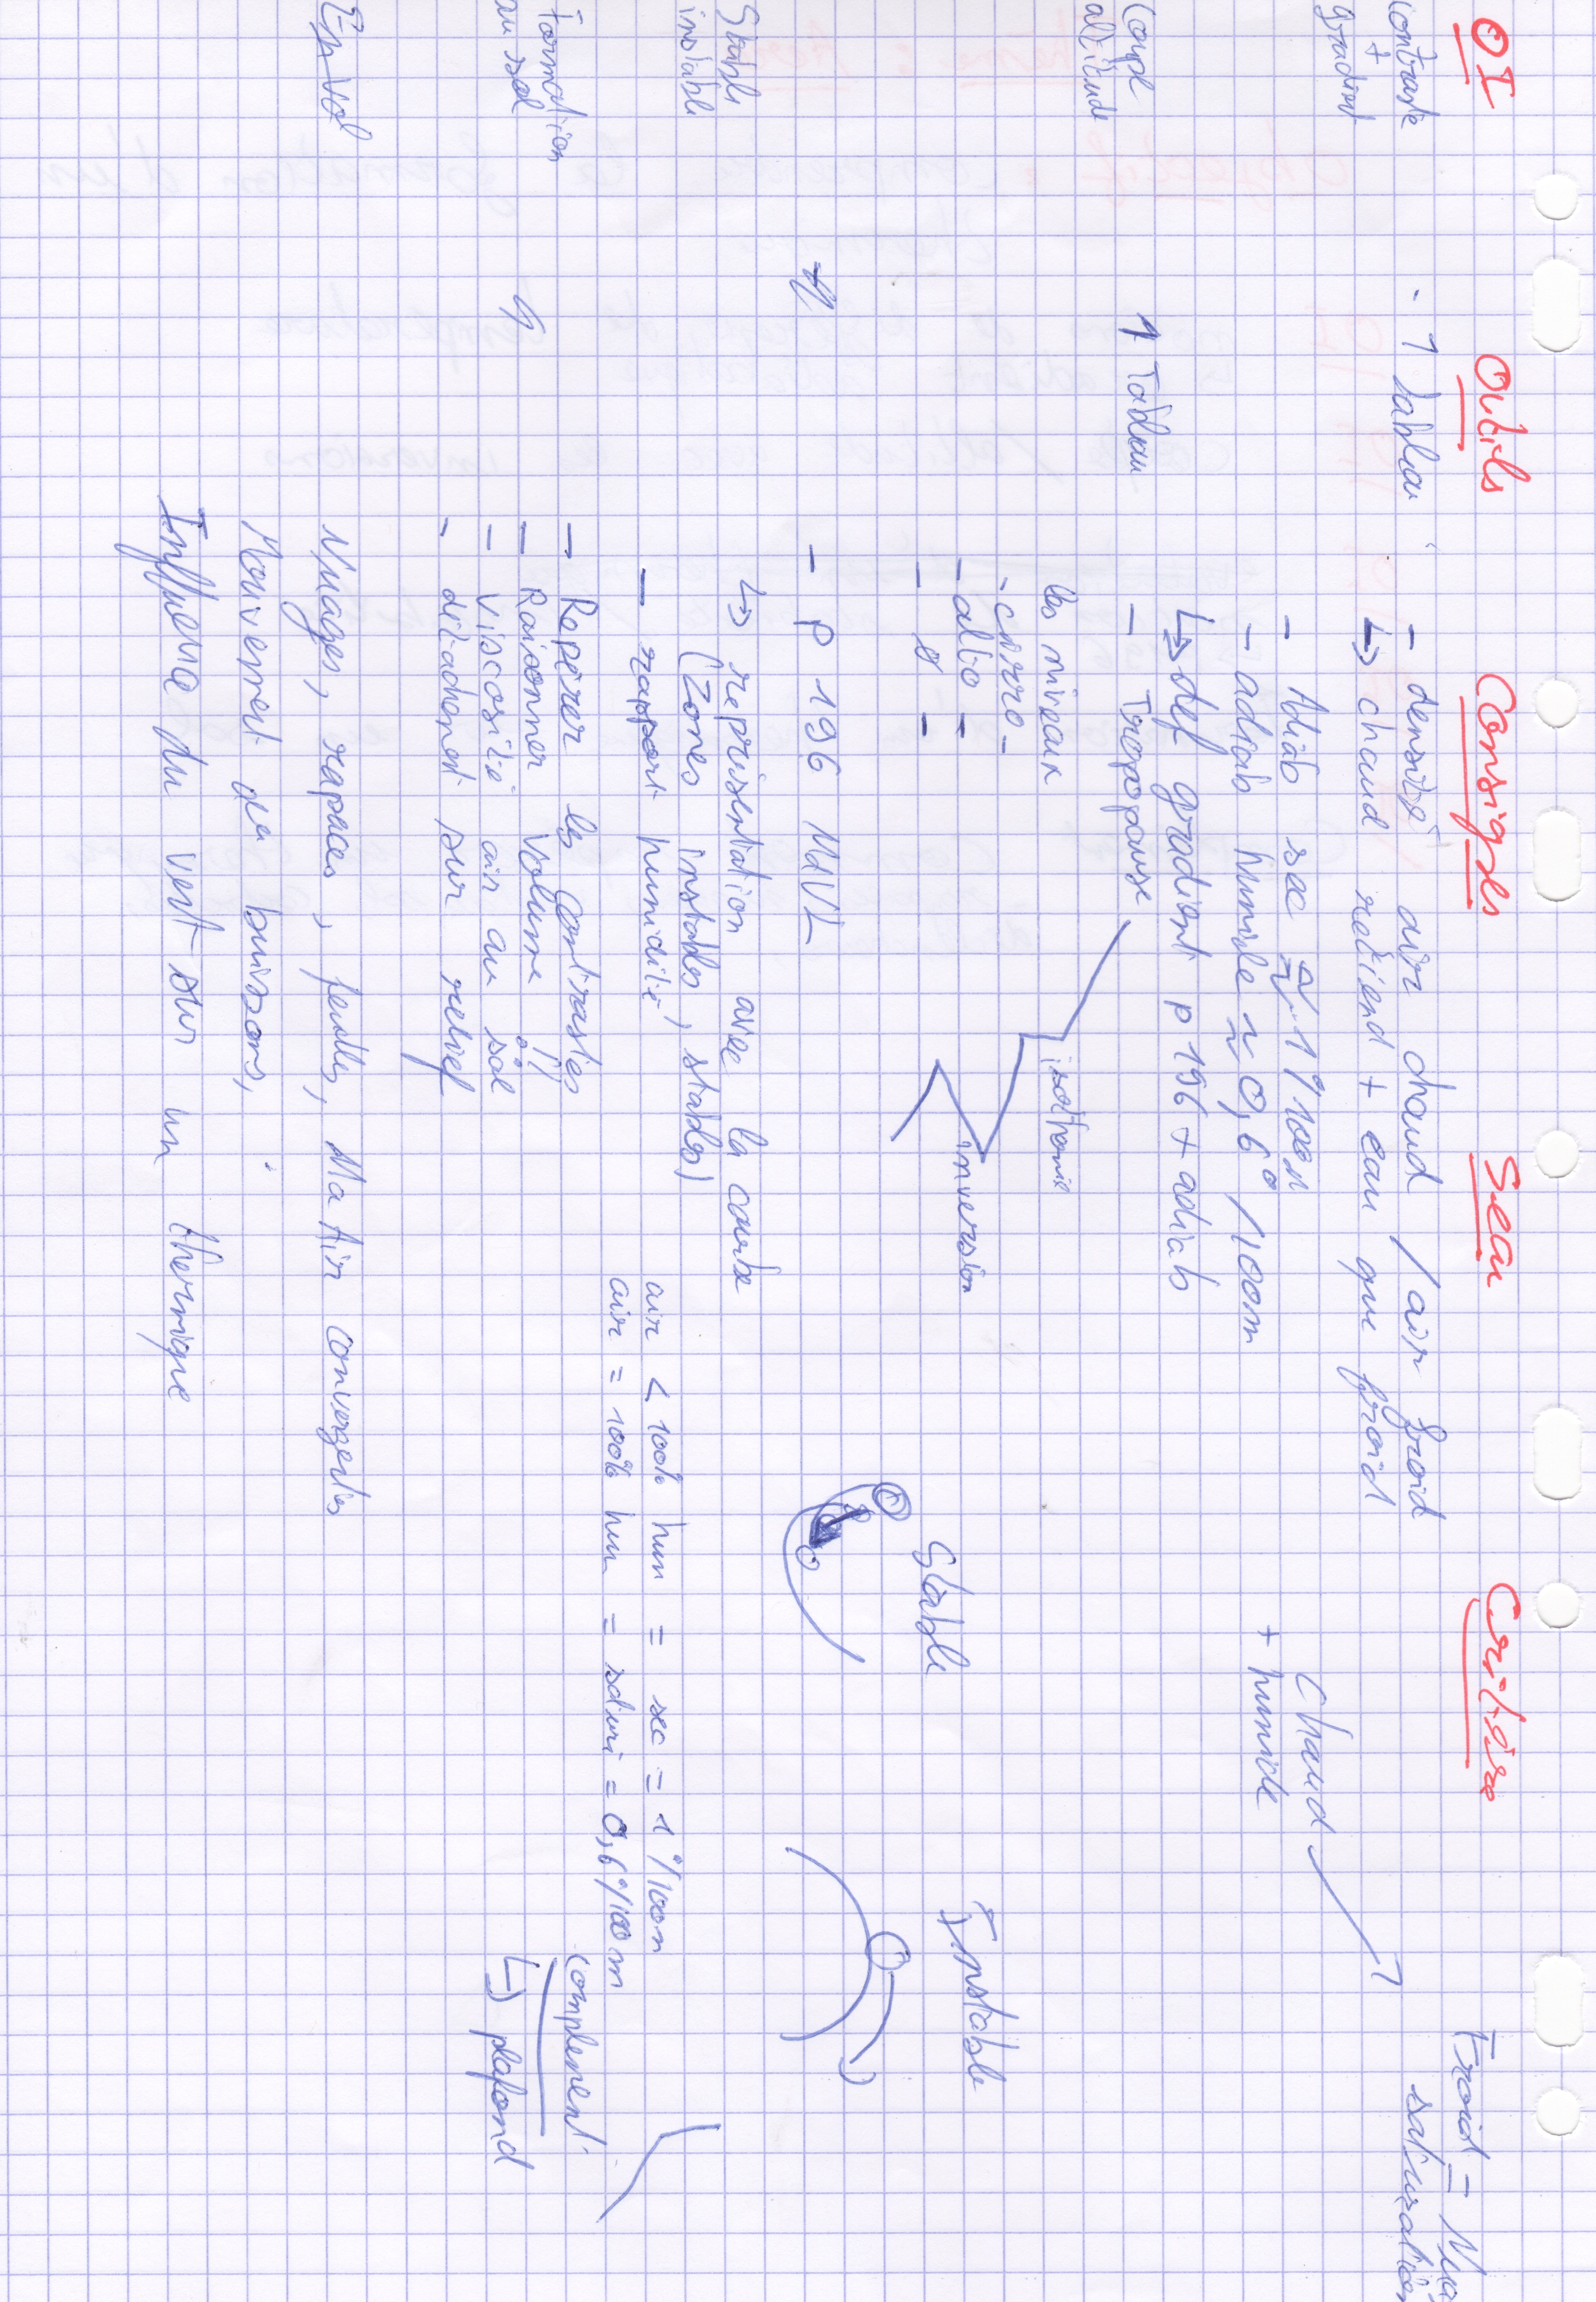 OI Outils Consignes Sean Critère
contraste - 1 tableau - densité air chaud / air froid Froid =
+ ↳ chaud retient + eau que froid saturation
gradient
- Adiab sec ≈ 1°/100m chaud
- adiab humide ≈ 0,6° /100m + humide
↳ def gradient p 196 + adiab
Coupe 1 Tableau - Tropopause
altitude
les niveaux isothermie
- cirro -
- alto - inversion
- -
Stable Instable
- p 196 MVL
Stable ↳ representation avec la courbe
instable (zones instables, stables)
- rapport humidité air < 100% hum = sec = 1°/100m
air = 100% hum = saturé = 0,6°/100m
Formation - Repérer les contrastes complement
au sol - Raisonner Volume !!
- Viscosité air au sol ↳ plafond
- détachement sur relief
En Vol Nuages, rapaces, feuilles, Ma Air convergentes
Mouvement de buissons,
Influence du vent sur un thermique